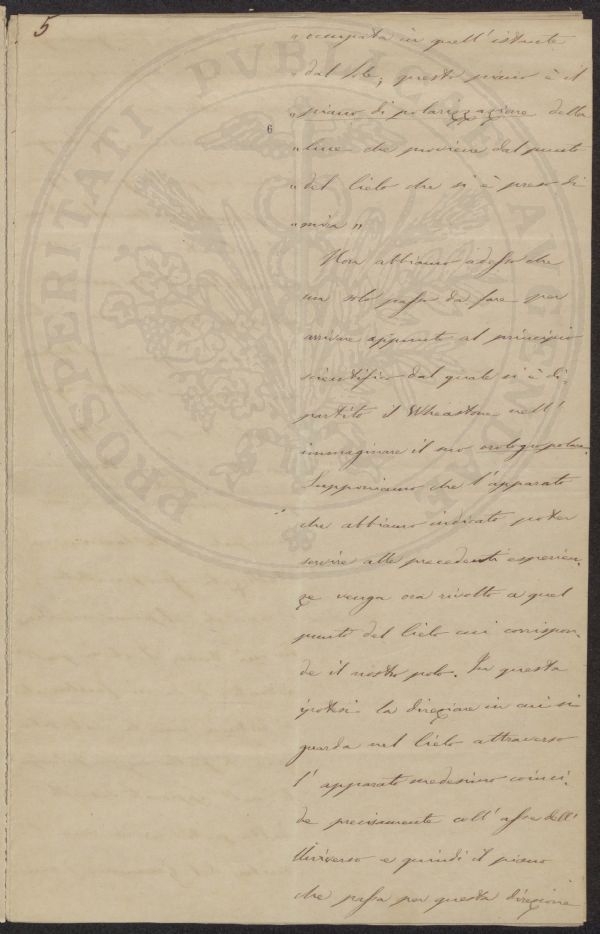 5
6
PROSPERITATI PVBLICAE AVGENDAE
„ occupata in quell' istante
„ dal Sole; questo piano è il
„ piano di polarizzazione della
„ luce che proviene dal punto
„ del Cielo che si è preso di
„ mira „
Non abbiamo adesso che
un solo passo da fare per
arrivare appunto al principio
scientifico dal quale si è di-
partito il Wheastone nell'
immaginare il suo orologio polare.
Supponiamo che l'apparato
che abbiamo indicato poter
servire alle precedenti esperien-
ze venga ora rivolto a quel
punto del Cielo cui corrispon-
de il nostro polo. In questa
ipotesi la direzione in cui si
guarda nel Cielo attraverso
l' apparato medesimo coinci-
de precisamente coll' asse dell'
Universo e quindi il piano
che passa per questa direzione